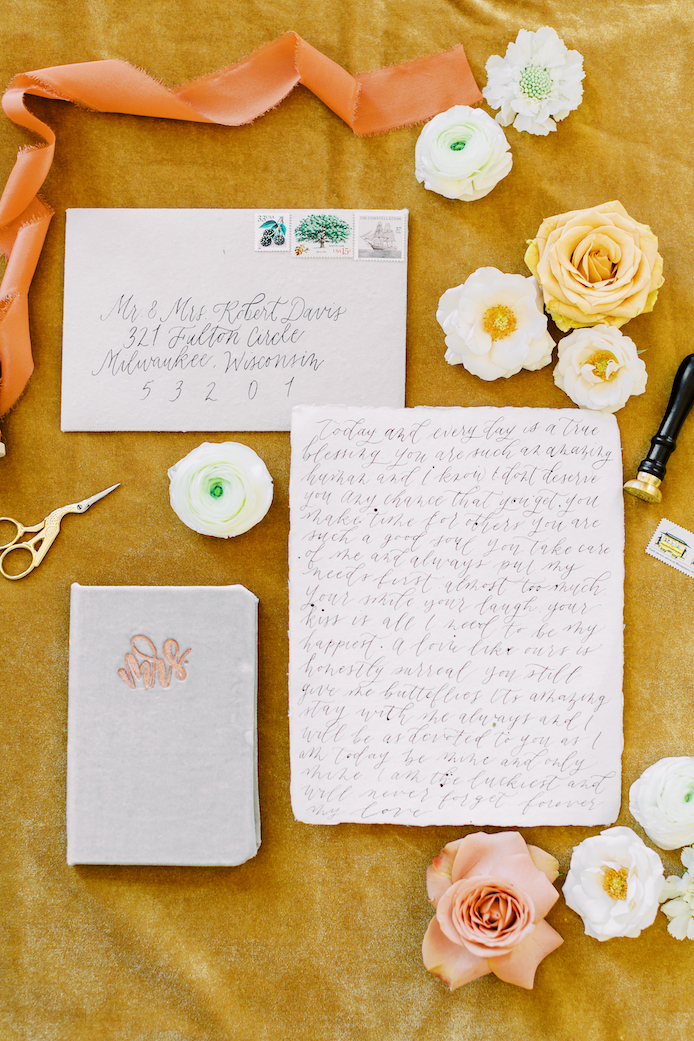 33 USA
USA 15c
Mr. & Mrs. Robert Davis
321 Fulton Circle
Milwaukee, Wisconsin
5 3 2 0 1
Today and every day is a true
blessing you are such an amazing
human and I know I dont deserve
you any chance that you get you
make time for others you are
such a good soul you take care
of me and always put my
needs first almost too much.
Your smile your laugh your
kiss is all I need to be my
happiest. A love like ours is
honestly surreal you still
give me butterflies its amazing
stay with me always and I
will be as devoted to you as I
am today be mine and only
mine I am the luckiest and
will never forget forever
my love
mrs.